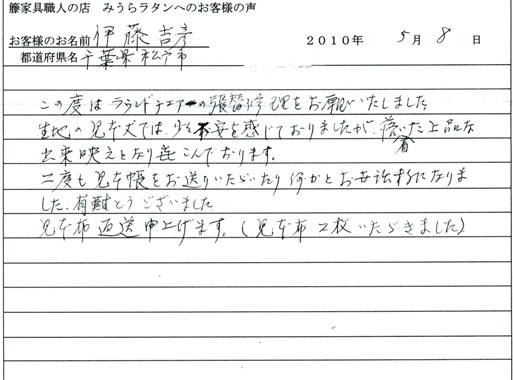 籐家具職人の店　みうらラタンへのお客様の声
お客様のお名前 伊藤吉彦　2010年 5月 8日
都道府県名 千葉県松戸市
この度はラウンドチェアーの張替修理をお願いいたしました
生地の見本丈では、少々不安を感じておりましたが、落着いた上品な
出来映えとなり喜こんでおります。
二度も見本帳をお送りいただいたり何かとお世話さまになりま
した、有難とうございました
見本布返送申上げます。(見本布2枚いただきました)